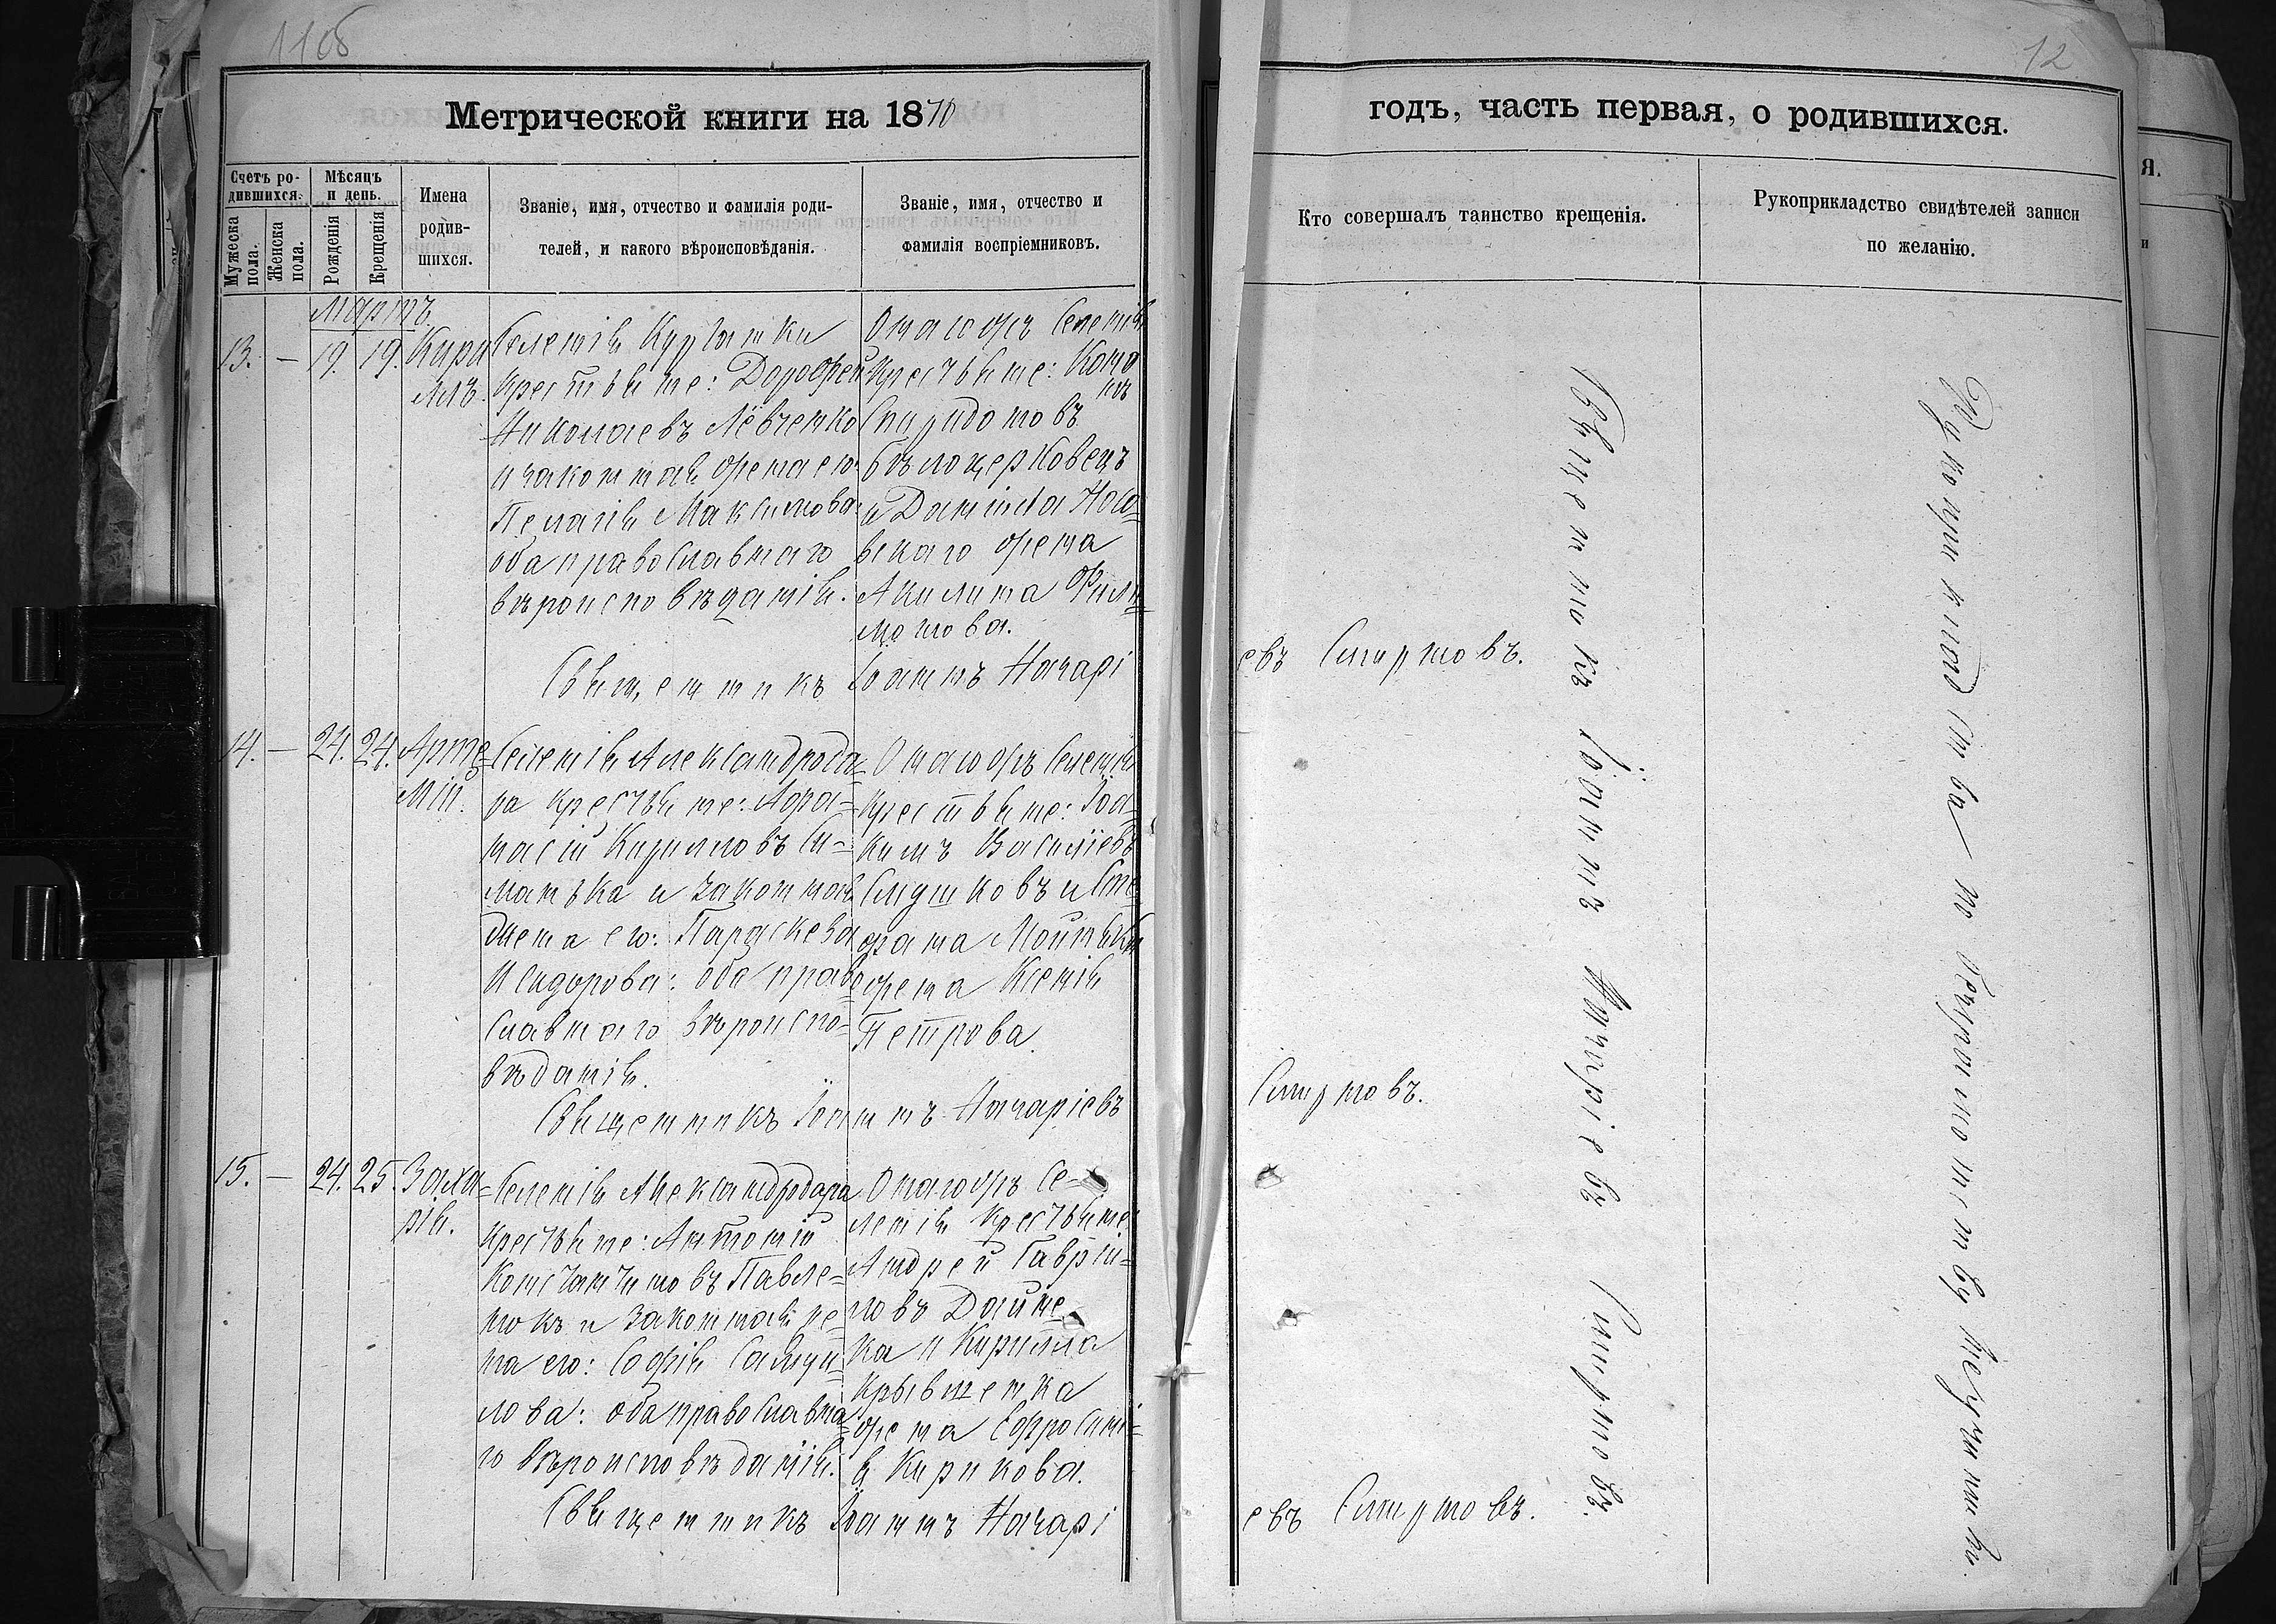 11об
12
Метрической книги на 1870
годъ, часть первая, о родившихся.
Счетъ родившихся.
Мужеска пола.
Женска пола.
Мѣсяцъ и день.
Рожденія
Крещенія
Имена родившихся.
Званіе, имя, отчество и фамилія родителей, и какого вѣроисповѣданія.
Званіе, имя, отчество и фамилія воспріемниковъ.
Кто совершалъ таинство крещенія.
Рукоприкладство свидѣтелей записи по желанію.
Мартъ
13. — 19. 19. Кири
лъ.
Селенія Курматки
Крестьяне: Дорофей
Николаевъ Лёвченко
и законная жена его
Пелагія Максимова
оба православнаго
вѣроисповѣданія.
Онагожъ Селенія
Крестьяне: Коно
нъ
Спиридоновъ
Бѣлоцерковецъ
и Даніила Носо=
вскаго жена
Акилина Фили=
монова.
Священникъ Іоаннъ Назарі
евъ Смирновъ.
14. — 24. 24. Арте=
мій.
Селенія Александрода=
ра крестьяне: Афа=
насій Кириловъ Си=
манька и законная
жена его: Параскева
Исидорова: оба право
славнаго вѣроиспо=
вѣданія.
Онагожъ Селенія
Крестьяне: Іоа=
кимъ Василіевъ
Слушковъ и
фана
жена Ксенія
Петрова
Священникъ Іоаннъ Назаріевъ
Смирновъ.
15. — 24. 25. Заха=
рія.
Селенія Александродара
крестьяне: Антоній
Константиновъ Павле=
нокъ и законная же=
на его: Софія Самуи=
лова: оба православна=
го Вѣроисповѣданія.
Онагожъ Се=
ленія Крестьяне
Андрей Гаврі=
ловъ Дайне
ка и Кирилла
Крывшенка
жена Ефросині=
я Кирикова.
Священникъ Іоаннъ Назарі
евъ Смирновъ.
Священникъ Іоаннъ Назаріевъ Смирновъ.
Рукоприкладства по безграмотству не учинили.